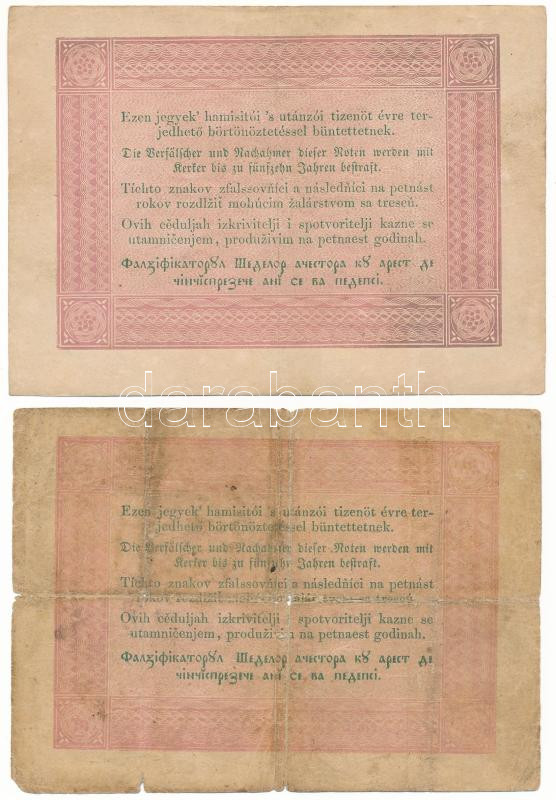 Ezen jegyek' hamisitói 's utánzói tizenöt évre ter-
jedhető börtönöztetéssel büntettetnek.
Die Verfälscher und Nachahmer dieser Noten werden mit
Kerker bis zu fünfzehn Jahren bestraft.
Tíchto znakov zfalssovňíci a následňíci na petnást
rokov rozdlžiť mohúcim žalárstvom sa trescú.
Ovih cĕduljah izkrivitelji i spotvoritelji kazne se
utamničenjem, produživim na petnaest godinah.
Фалȣіфікаторȣл Шеделор ачестора кȣ арест де
чінчіспрезече ані се ва педепсі.
darabanth
Ezen jegyek' hamisitói 's utánzói tizenöt évre ter-
jedhető börtönöztetéssel büntettetnek.
Die Verfälscher und Nachahmer dieser Noten werden mit
Kerker bis zu fünfzehn Jahren bestraft.
Tíchto znakov zfalssovňíci a následňíci na petnást
rokov rozdlžiť
Ovih cĕduljah izkrivitelji i spotvoritelji kazne se
utamničenjem, produživim na petnaest godinah.
Фалȣіфікаторȣл Шеделор ачестора кȣ арест де
чінчіспрезече ані се ва педепсі.